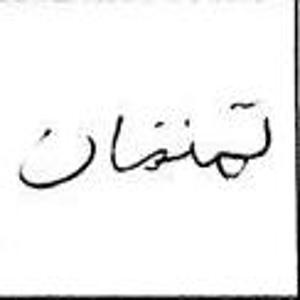 تمنغان